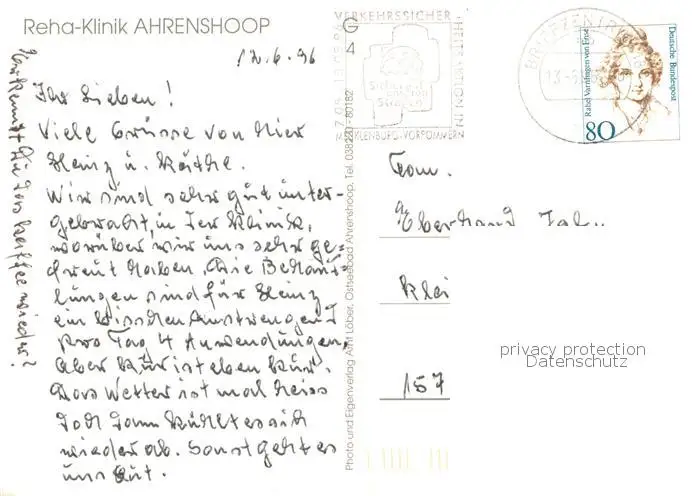 Reha-Klinik AHRENSHOOP
12.6.96
Ihr Lieben!
Viele Grüsse von hier
Heinz u. Käthe.
Wir sind sehr gut unter-
gebracht, in der Klinik,
worüber wir uns sehr ge-
freut haben. Die Behand-
lungen sind für Heinz
ein bisschen Anstrengend
pro Tag 4 Anwendungen,
aber Kur ist eben Kur.
Das Wetter ist mal heiss
doch dann kühlt es sich
wieder ab. Sonst geht es
uns Gut.
Die das Kaffee wieder?
Photo und Eigenverlag Arni Löber, Ostseebad Ahrenshoop, Tel. 038220/7-80182
VERKEHRSSICHER
G
4
MECKLENBURG-VORPOMMERN
BRIEFZENTRUM
Deutsche Bundespost
Rahel Varnhagen von Ense
80
Fam.
Eberhard
Klei
157
privacy protection
Datenschutz